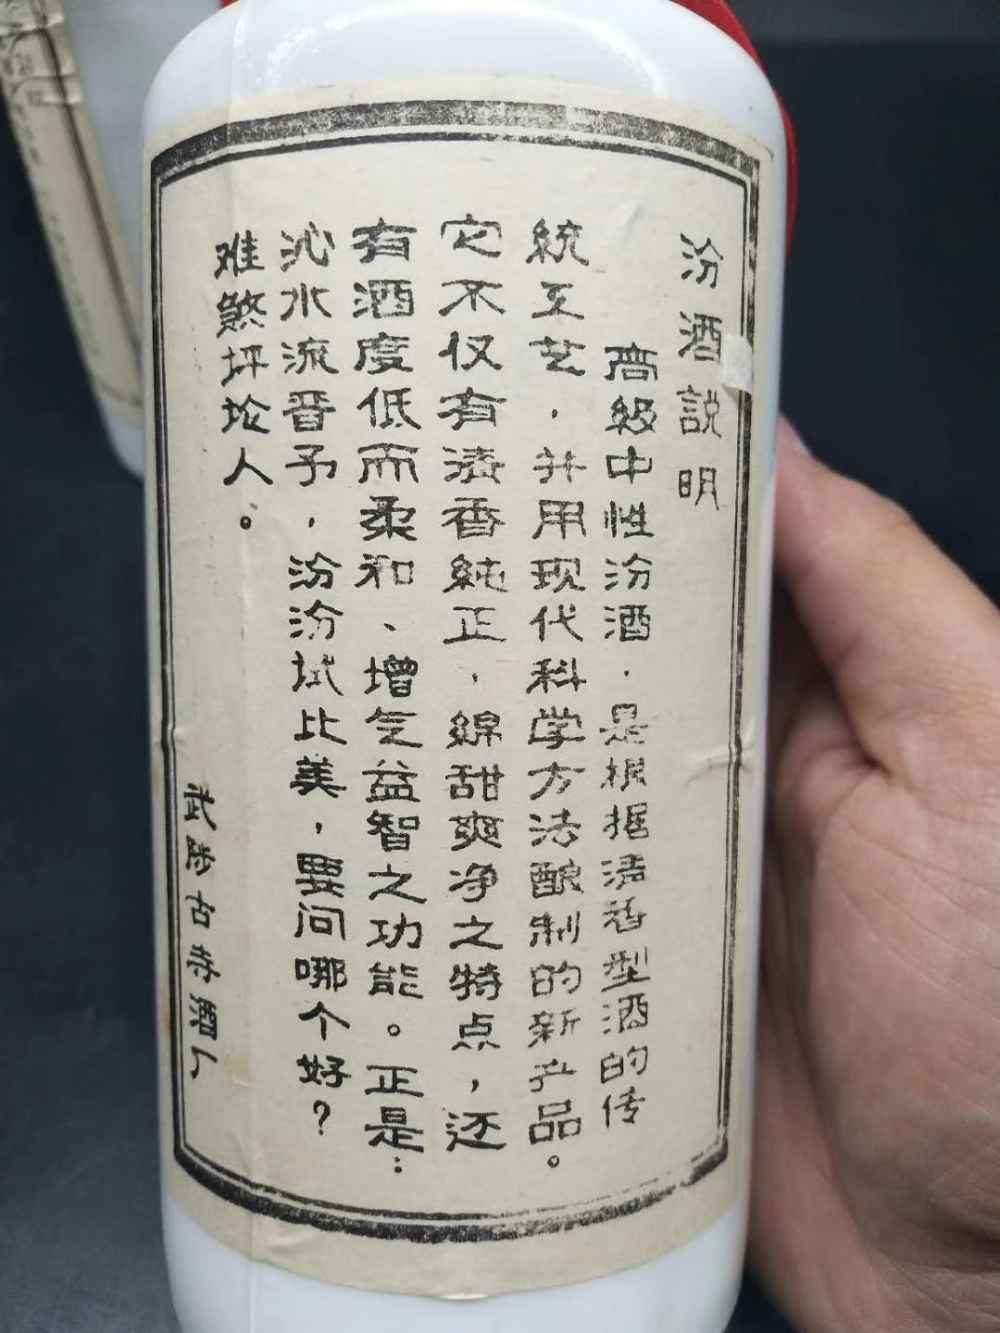 汾酒説明
高级中性汾酒．是根据清香型酒的传
統工艺，并用现代科学方法酿制的新产品。
它不仅有清香純正，綿甜爽净之特点，还
有酒度低而柔和、增气益智之功能。正是：
沁水流晋予，汾汾试比美，要问哪个好？
难煞坪坨人。
武陟古寺酒厂